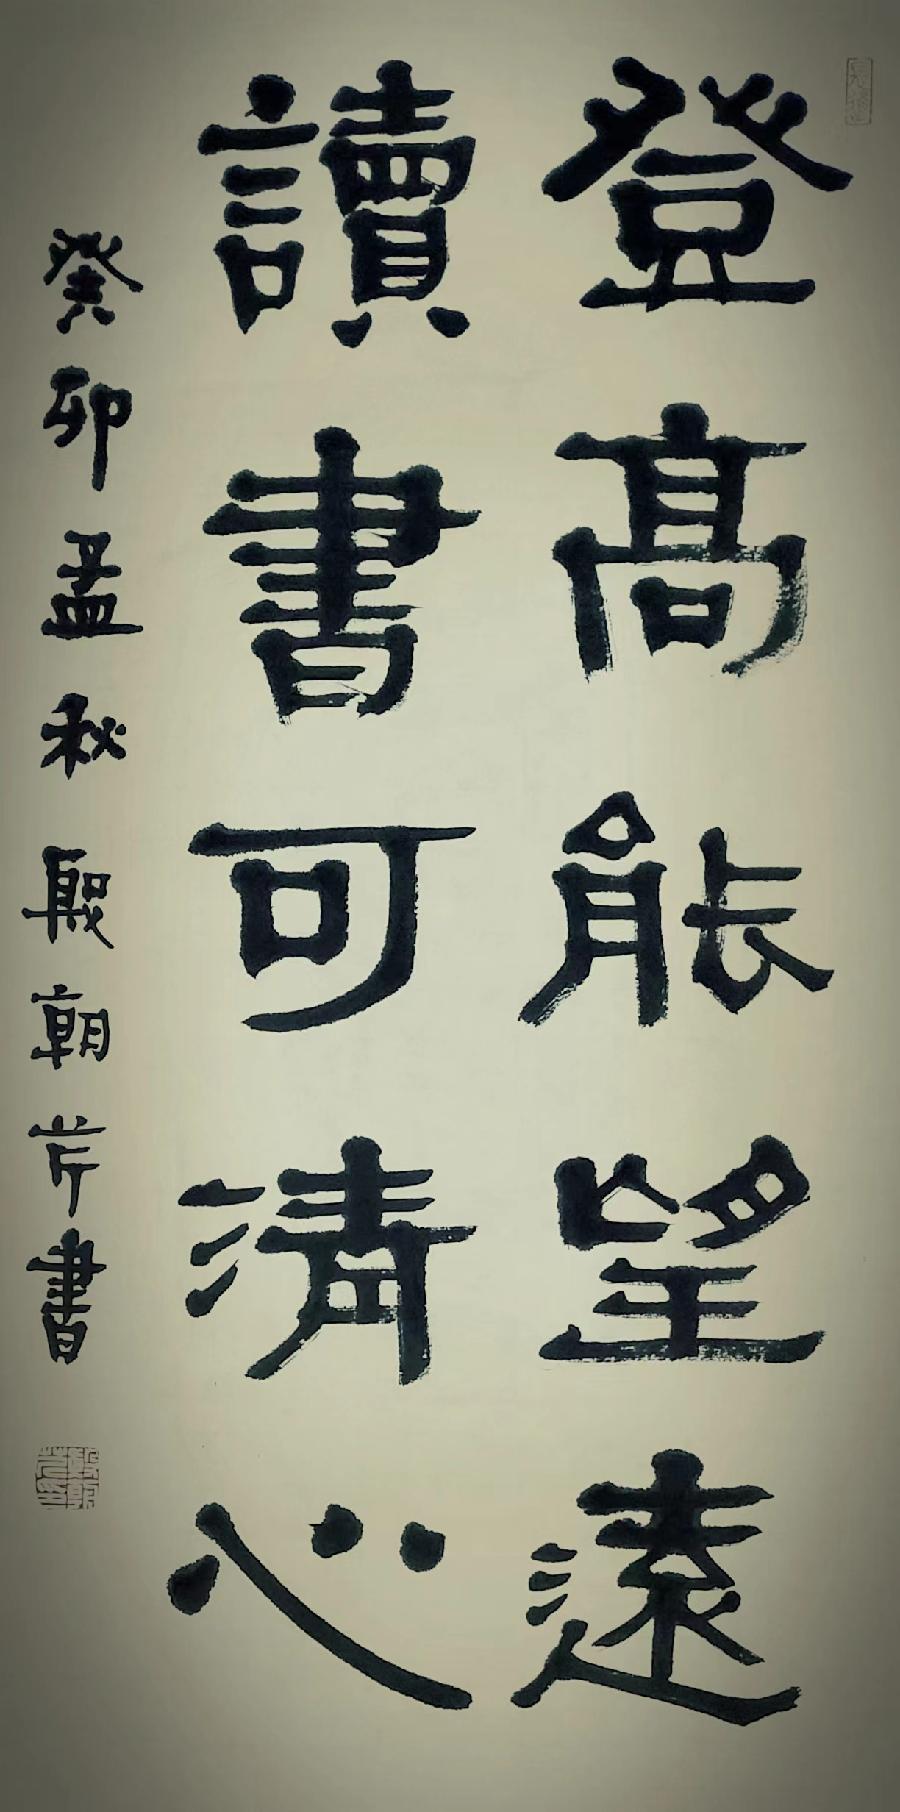 登高能望遠
讀書可清心
癸卯孟秋殷朝芹書